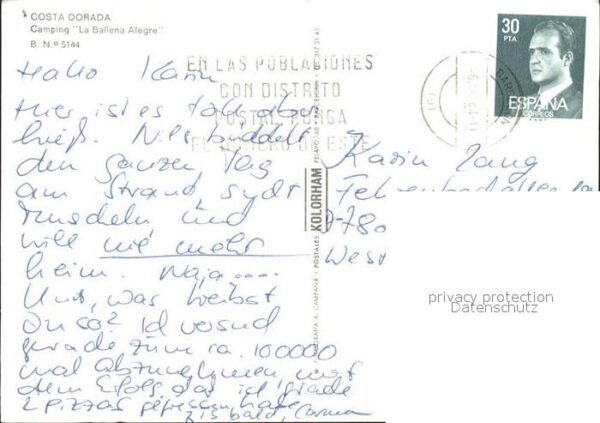 COSTA DORADA
Camping "La Ballena Alegre"
B. N.º 5144
30
PTA
ESPAÑA
CORREOS
EN LAS POBLACIONES
CON DISTRITO
POSTAL PONGA
EL NUMERO DE ESTE
Hallo Karin
Hier ist es toll, aber
heiß. Nils buddelt
den ganzen Tag
am Strand, sucht
Muscheln und
will nie mehr
heim. Naja....
Und, was treibst
Du so? Ich versuch
gerade zum ca. 100000
mal abzunehmen mit
dem Erfolg das ich grade
2 Pizzas gefressen habe
Bis bald, Carmen
KOLORHAM
POSTALES
Karin Lang
780
West
privacy protection
Datenschutz